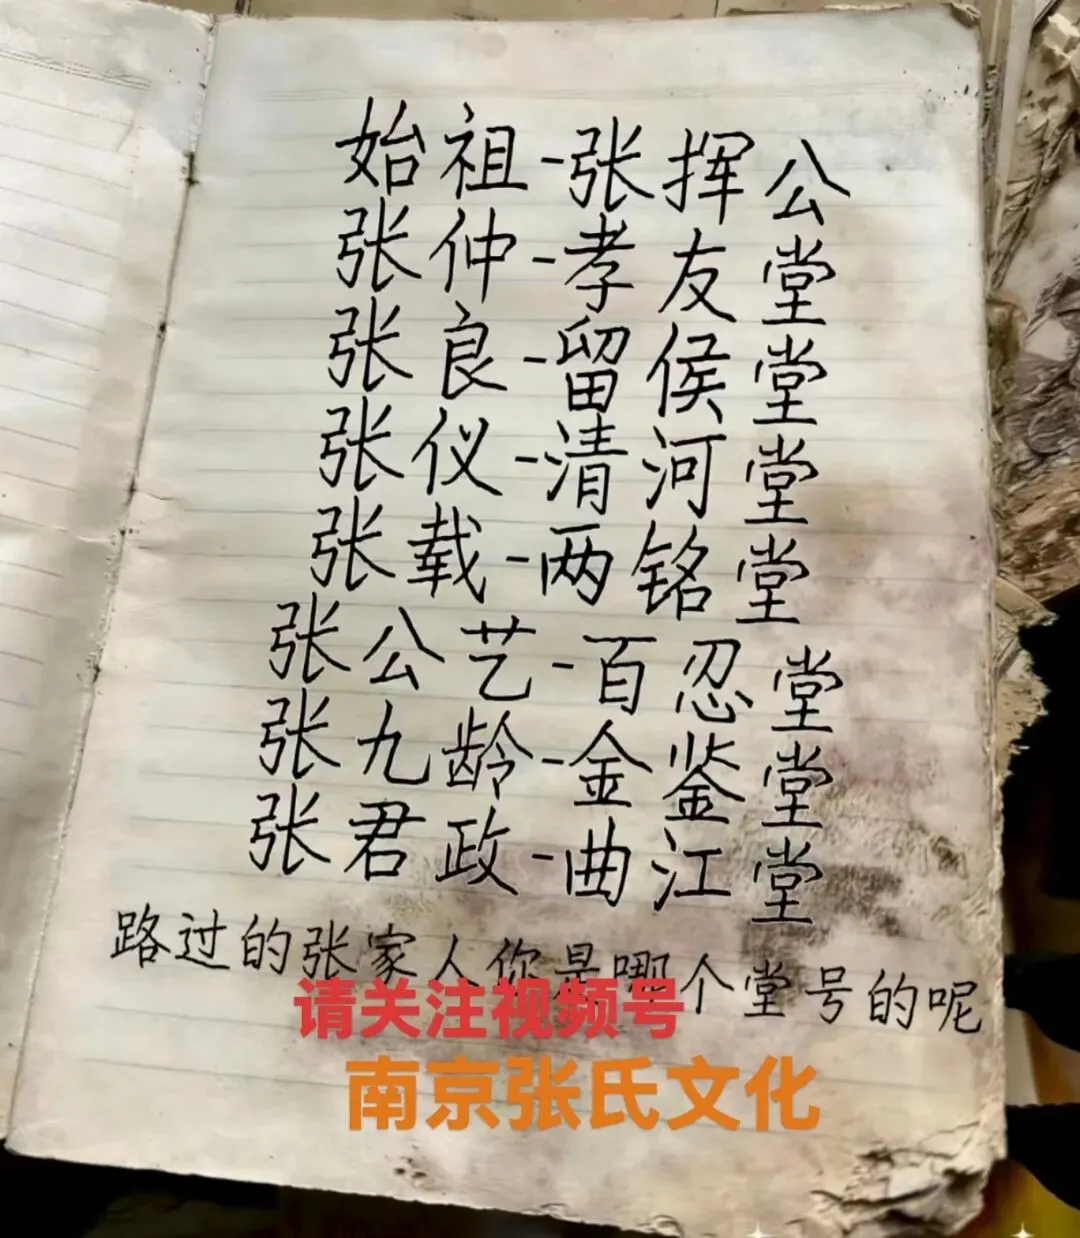 始祖-张挥公
张仲-孝友堂
张良-留侯堂
张仪-清河堂
张载-两铭堂
张公艺-百忍堂
张九龄-金鉴堂
张君政-曲江堂
路过的张家人你是哪个堂号的呢
请关注视频号
南京张氏文化